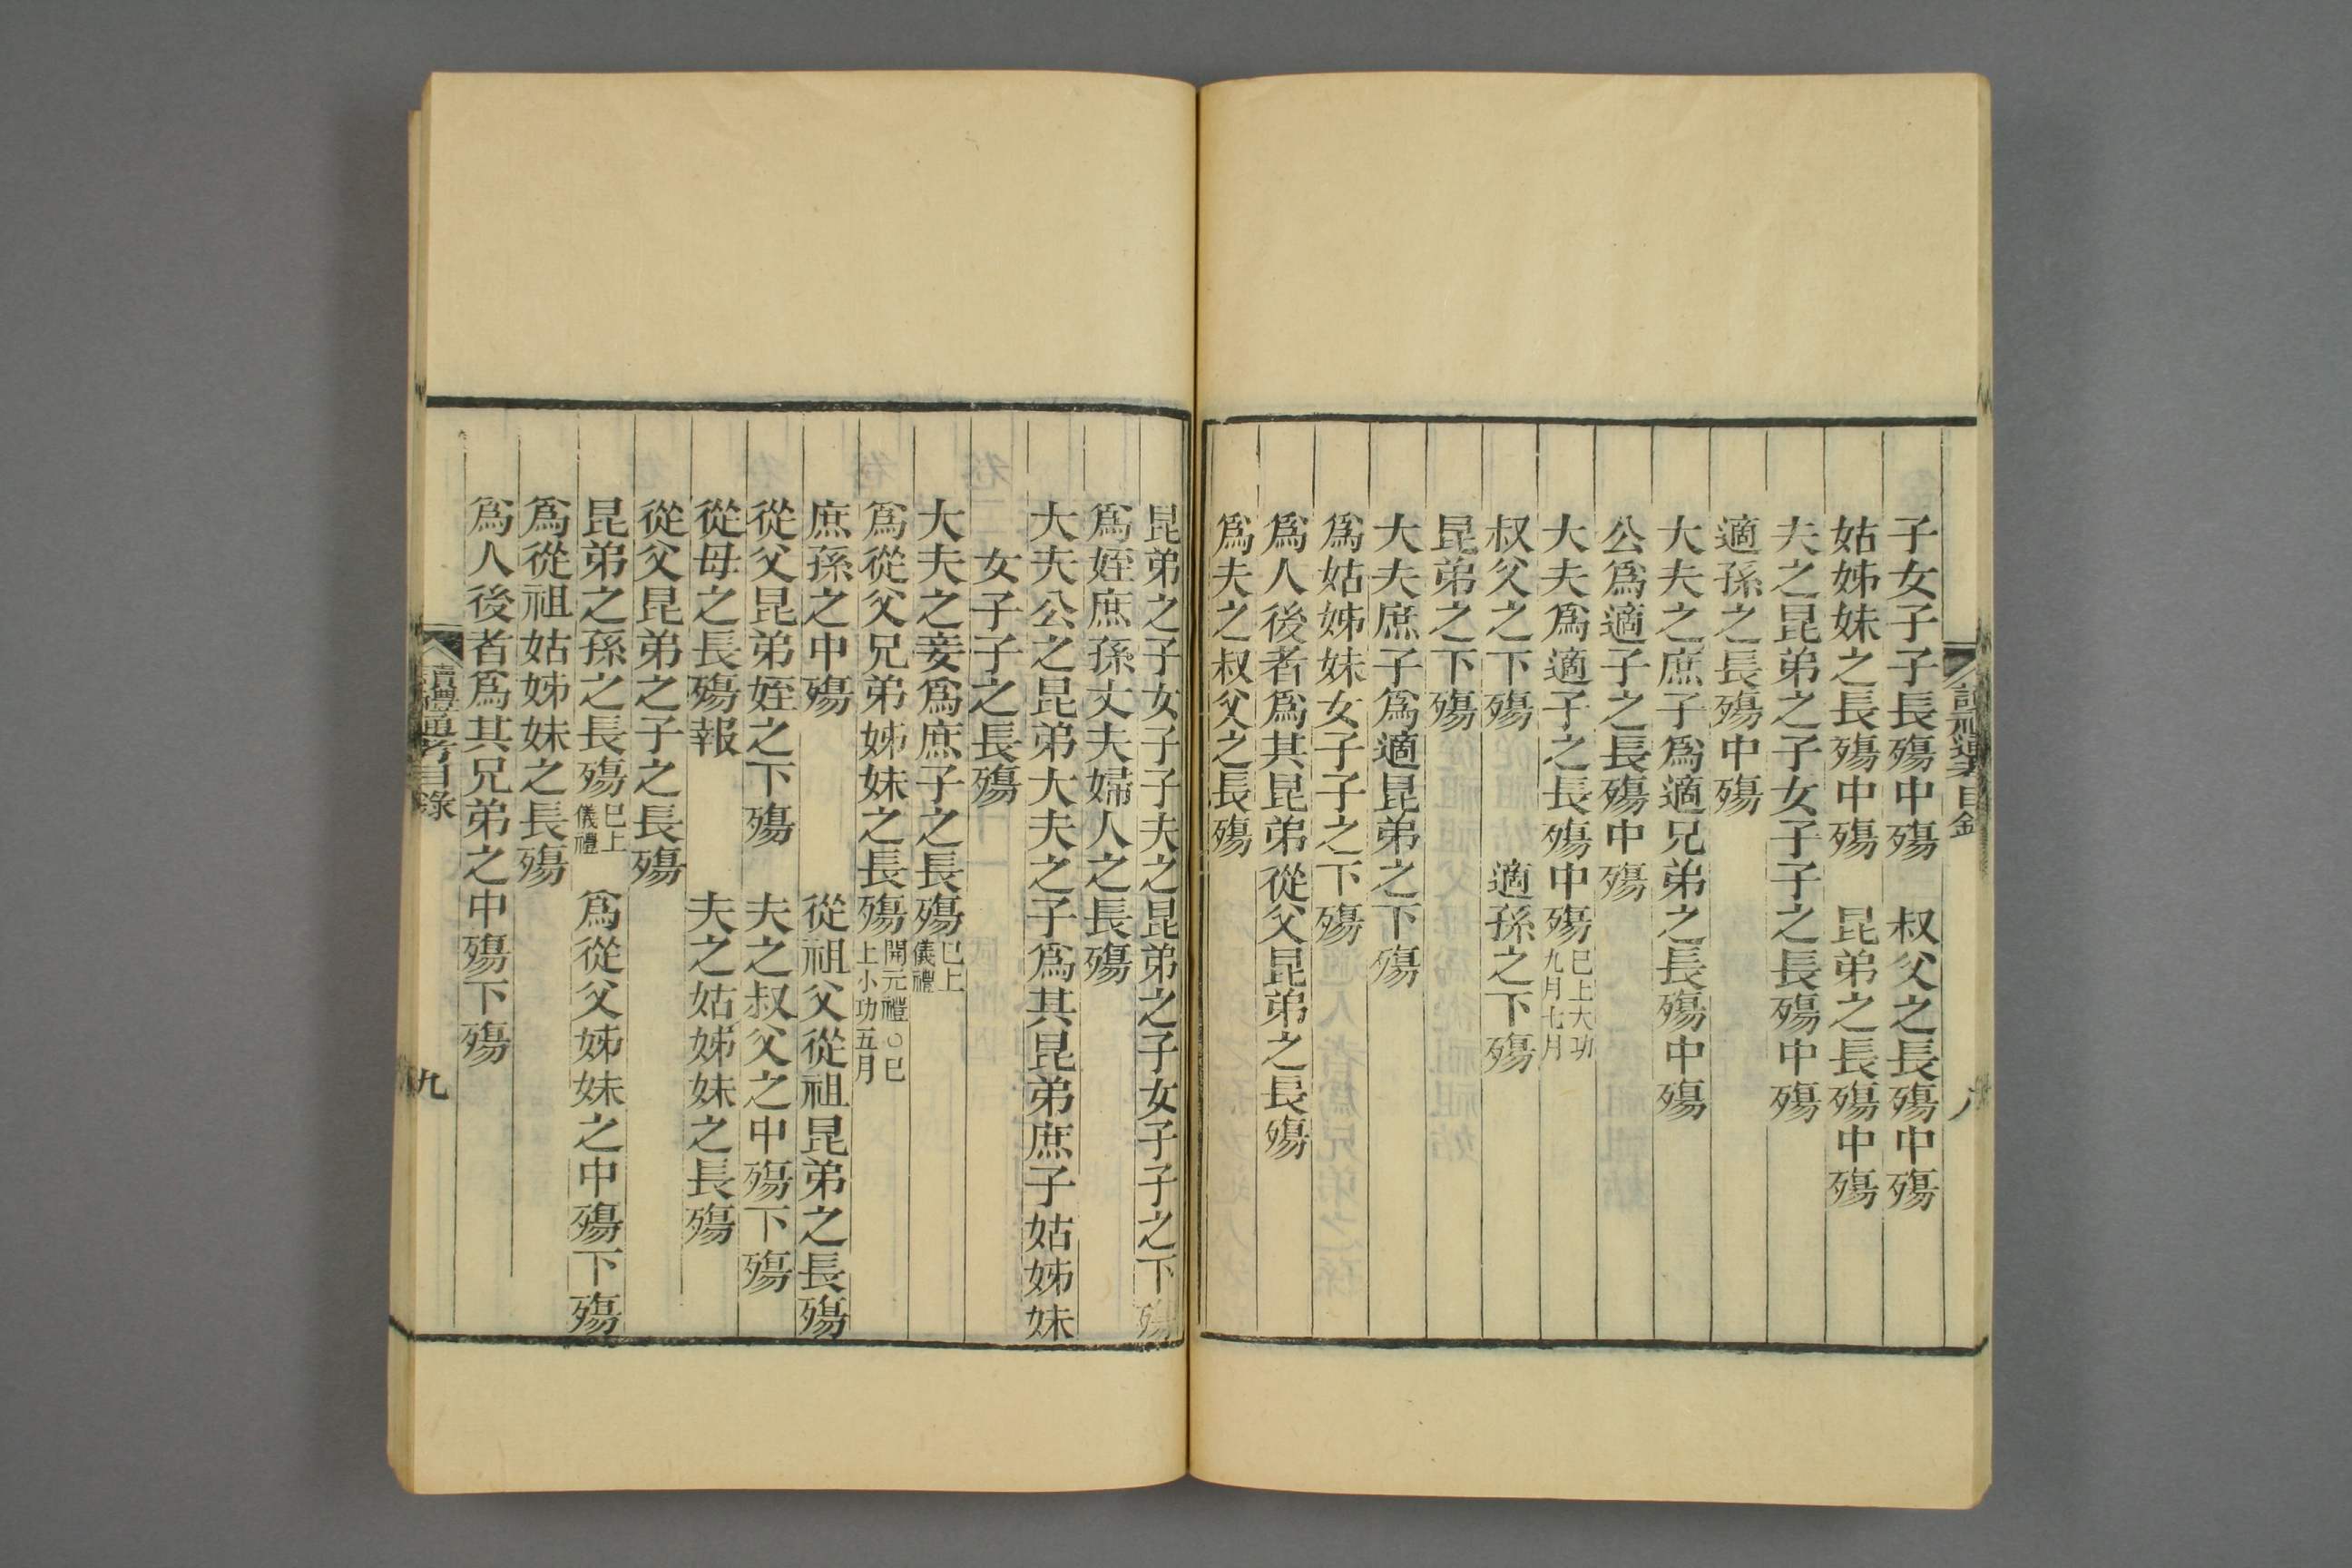 子女子子長殤中殤 叔父之長殤中殤
姑姊妹之長殤中殤 昆弟之長殤中殤
夫之昆弟之子女子子之長殤中殤
適孫之長殤中殤
大夫之庶子爲適兄弟之長殤中殤
公爲適子之長殤中殤
大夫爲適子之長殤中殤 已上大功九月七月
叔父之下殤 適孫之下殤
昆弟之下殤
大夫庶子爲適昆弟之下殤
爲姑姊妹女子子之下殤
爲人後者爲其昆弟從父昆弟之長殤
爲夫之叔父之長殤
昆弟之子女子子夫之昆弟之子女子子之下殤
爲姪庶孫丈夫婦人之長殤
大夫公之昆弟大夫之子爲其昆弟庶子姑姊妹
女子子之長殤
大夫之妾爲庶子之長殤 已上儀禮
爲從父兄弟姊妹之長殤 開元禮○已上小功五月
庶孫之中殤 從祖父從祖昆弟之長殤
從父昆弟姪之下殤 夫之叔父之中殤下殤
從母之長殤報 夫之姑姊妹之長殤
從父昆弟之子之長殤
昆弟之孫之長殤 已上儀禮 爲從父姊妹之中殤下殤
爲從祖姑姊妹之長殤
爲人後者爲其兄弟之中殤下殤
讀禮通考目錄
九